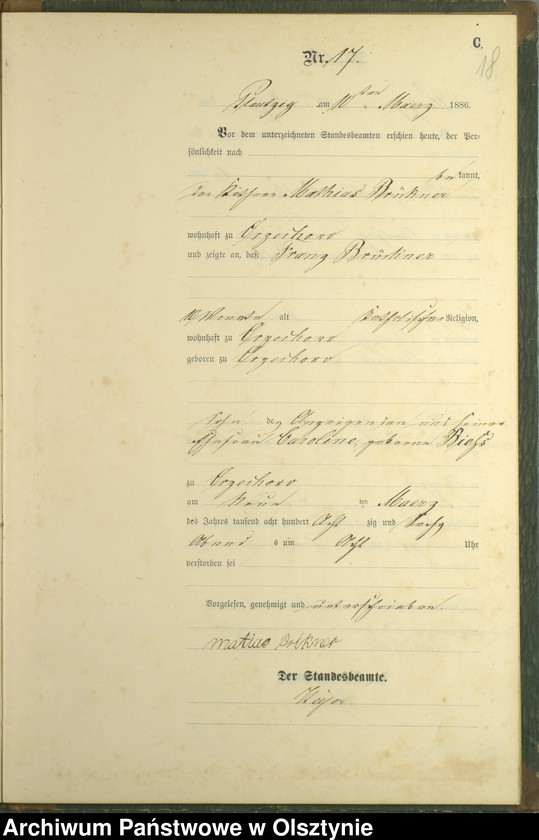 C.
18
Nr. 17.
Plautzig am 10ten Maerz 1886.
Vor dem unterzeichneten Standesbeamten erschien heute, der Per-
sönlichkeit nach
bekannt,
der Käthner Mathias Brückner
wohnhaft zu
und zeigte an, daß Franz Brückner
alt katholischer Religion,
wohnhaft zu
geboren zu
Sohn des Anzeigenden und seiner
Ehefrau Caroline, geborene
zu
am Neun ten Maerz
des Jahres tausend acht hundert Acht zig und Sechs
Abends um Acht Uhr
verstorben sei
Vorgelesen, genehmigt und unterschrieben.
matias
Der Standesbeamte.
Archiwum Państwowe w Olsztynie